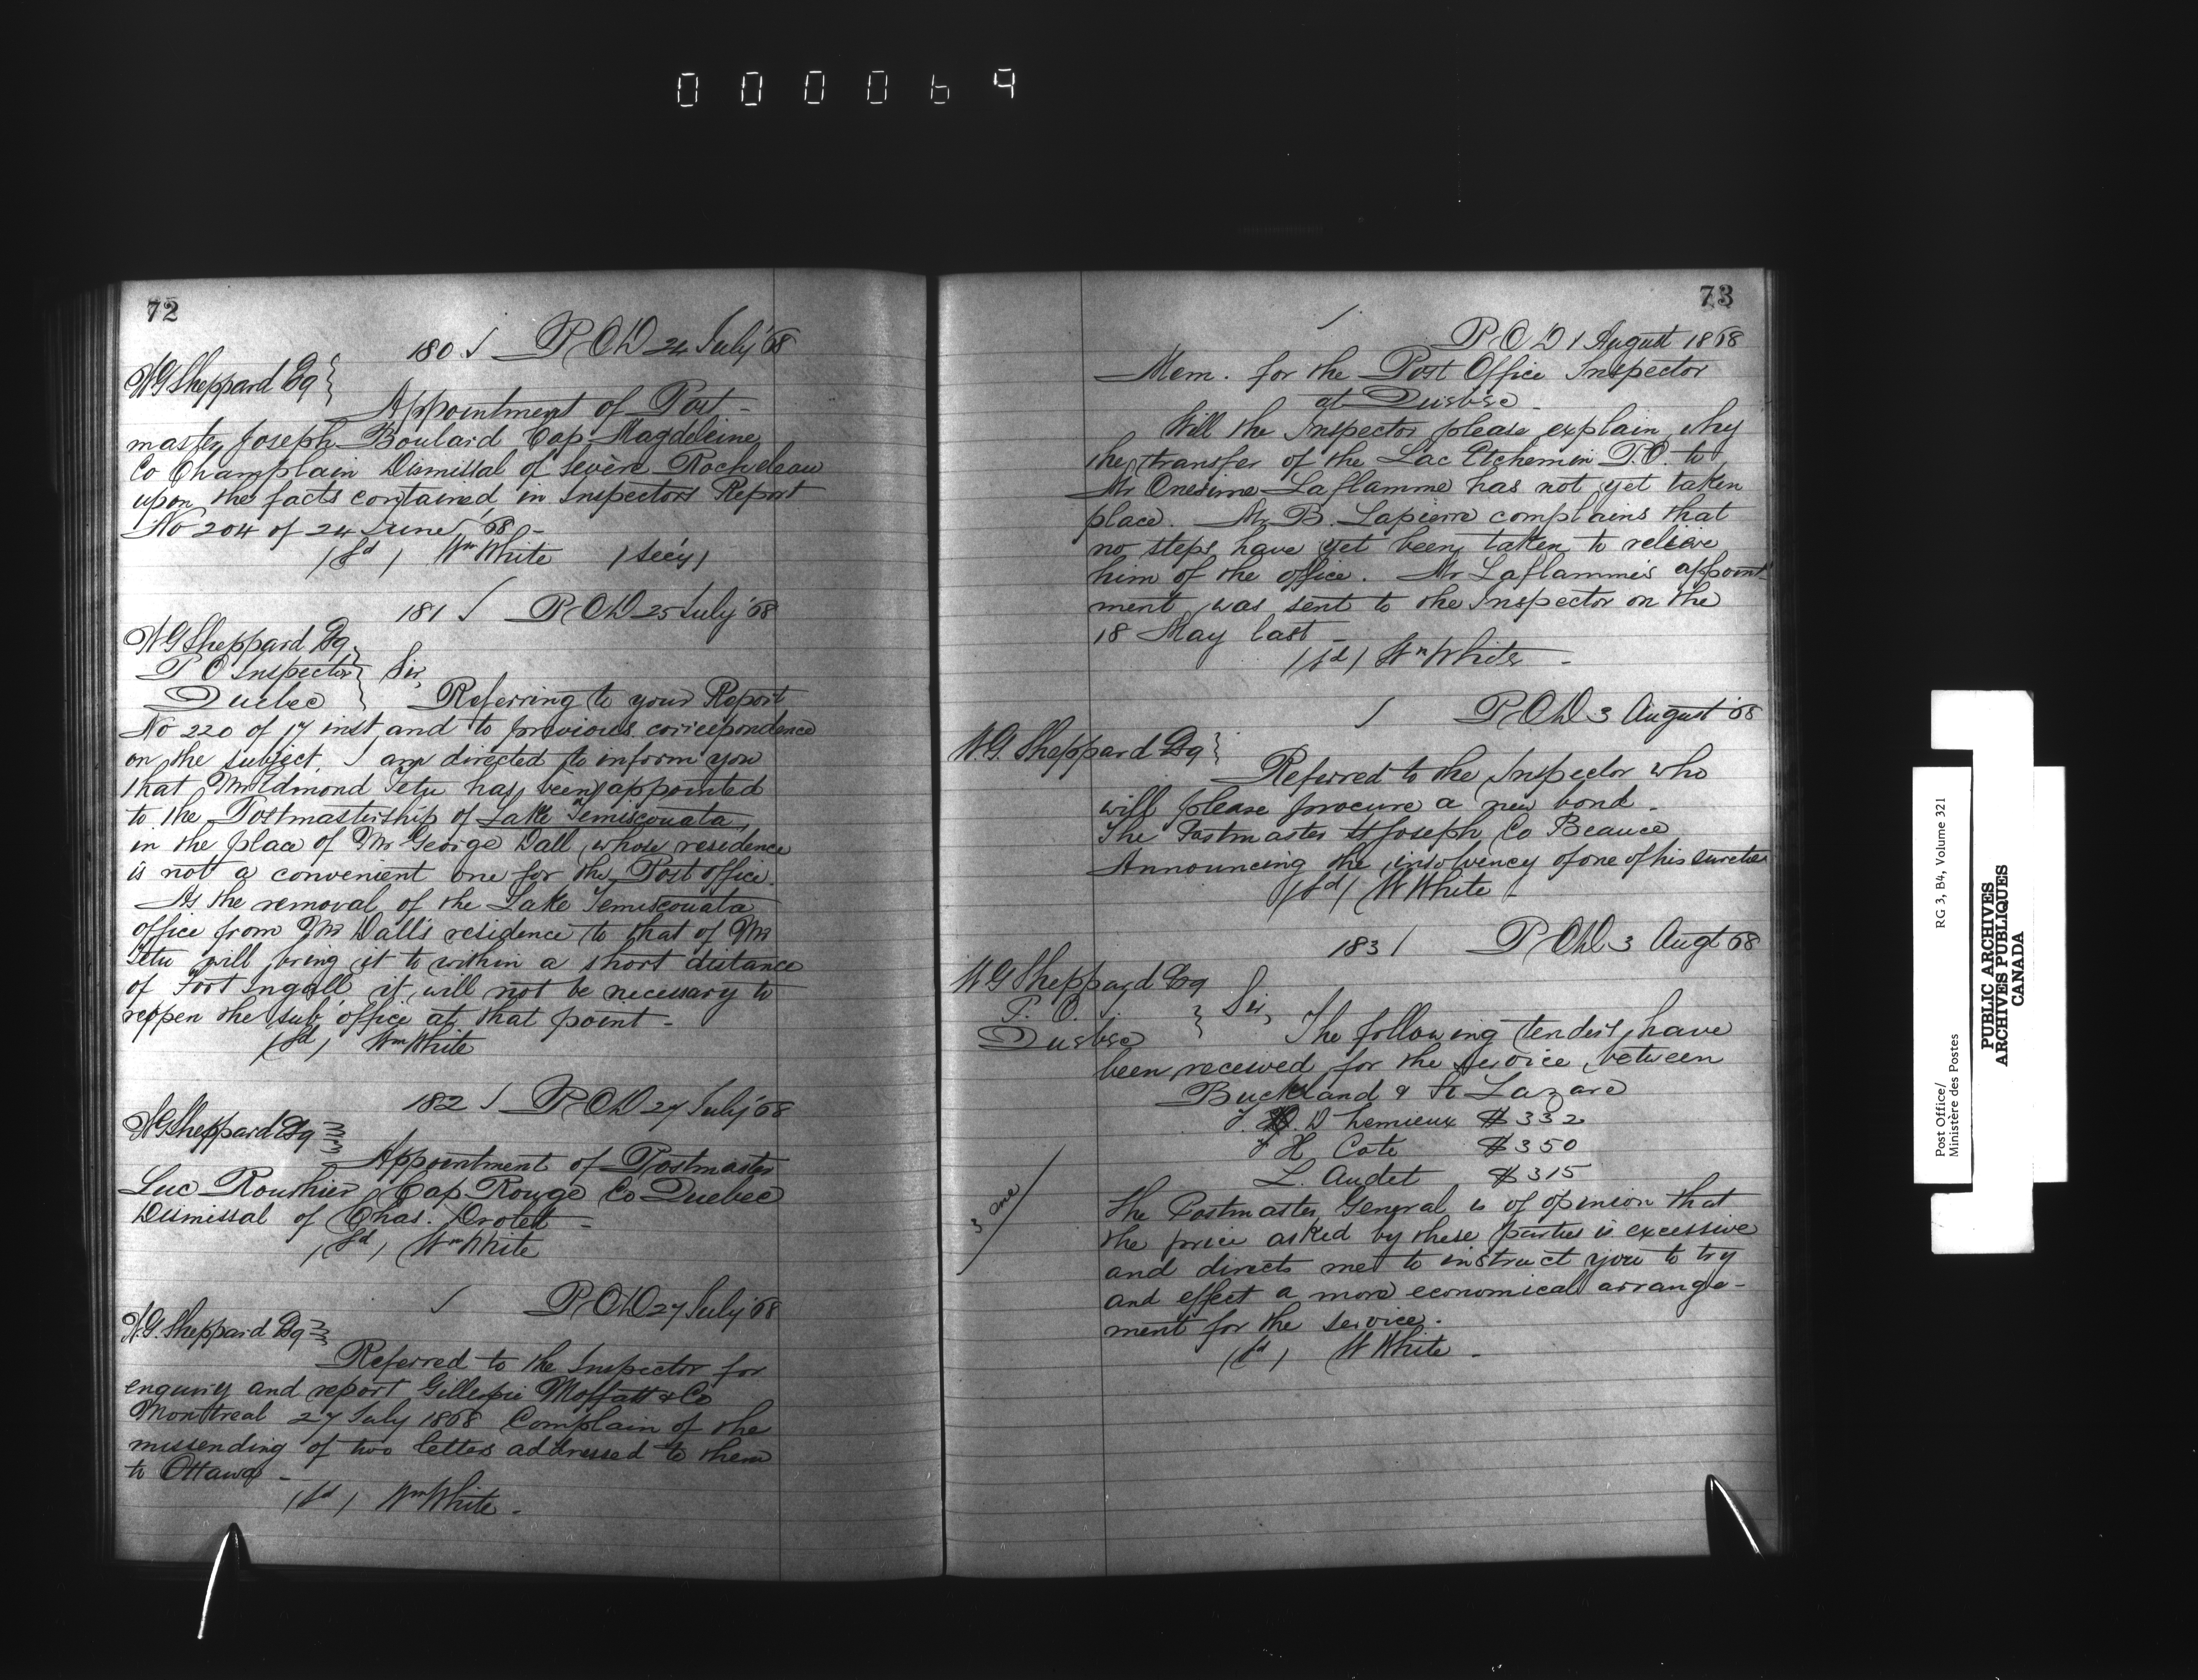 000069
72
180 P.O.D 24 July '68
W G Sheppard Esq
Appointment of Post-
master, Joseph Boulard Cap Magdeleine
Co Champlain Dismissal of Sevère Rocheleau
upon the facts contained in Inspectors Report
No 204 of 24 June '68 -
(sd) Wm White (Sec'y)
181 P.O.D 25 July '68
W G Sheppard Esq
P O Inspector Sir,
Quebec Referring to your Report
No 220 of 17 inst and to previous correspondence
on the subject, I am directed to inform you
that Mr Edmond Tetu has been appointed
to the Postmastership of Lake Temiscouata,
in the place of Mr George Dall, whose residence
is not a convenient one for the Post office.
As the removal of the Lake Temiscouata
office from Mr Dall's residence to that of Mr
Tetu will bring it to within a short distance
of Fort Ingall it will not be necessary to
reopen the sub office at that point -
(sd) Wm White
182 P.O.D 27 July '68
W G Sheppard Esq
Appointment of Postmaster
Luc Routhier Cap Rouge Co Quebec
Dismissal of Chas. Drolett -
(sd) Wm White
P.O.D 27 July '68
W.G. Sheppard Esq
Referred to the Inspector for
enquiry and report Gillespie Moffatt & Co
Montreal 27 July 1868 Complain of the
missending of two letters addressed to them
to Ottawa -
(sd) Wm White -
73
P.O.D 1 August 1868
Mem. for the Post Office Inspector
at Quebec -
Will the Inspector please explain why
the transfer of the Lac Etchemin P.O. to
Mr Onesime Laflamme has not yet taken
place. Mr B. Lapierre complains that
no steps have yet been taken to relieve
him of the office. Mr Laflamme's appoint-
ment was sent to the Inspector on the
18 May last -
(sd) Wm White -
P.O.D 3 August '68
W.G. Sheppard Esq
Referred to the Inspector who
will please procure a new bond -
The Postmaster St Joseph Co Beauce
Announcing the insolvency of one of his sureties
(sd) W White -
183 P.O.D 3 Augt 68
W G Sheppard Esq
P. O. I. Sir,
Quebec The following tenders have
been received for the service between
Buckland & St Lazare
J. D Lemieux $332
J H Cote $350
L. Audet $315
The Postmaster General is of opinion that
the price asked by these parties is excessive
and directs me to instruct you to try
and effect a more economical arrange-
ment for the service.
(sd) W White -
Post Office/ RG 3, B4, Volume 321
Ministère des Postes
PUBLIC ARCHIVES
ARCHIVES PUBLIQUES
CANADA